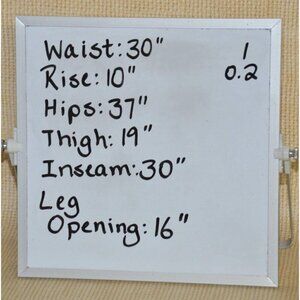 Waist: 30" 1
Rise: 10" 0.2
Hips: 37"
Thigh: 19"
Inseam: 30"
Leg
Opening: 16"